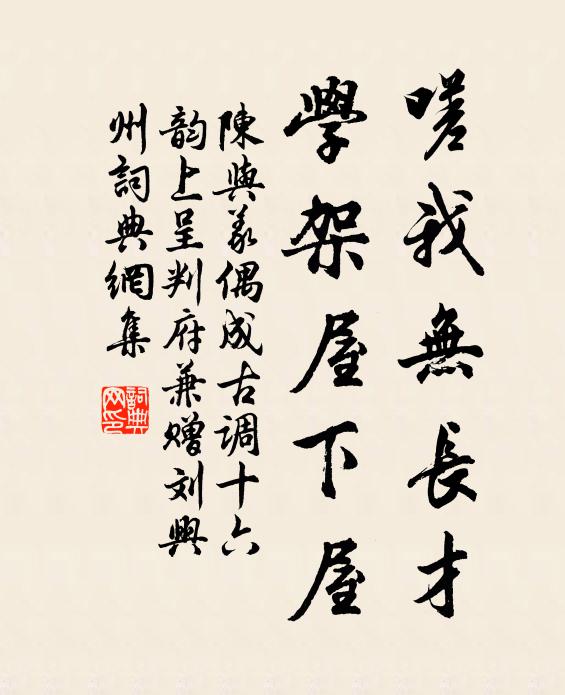 嗟我無長才
學架屋下屋
陳與義偶成古调十六
韵上呈判府兼赠刘興
州詞典網集
詞典網印